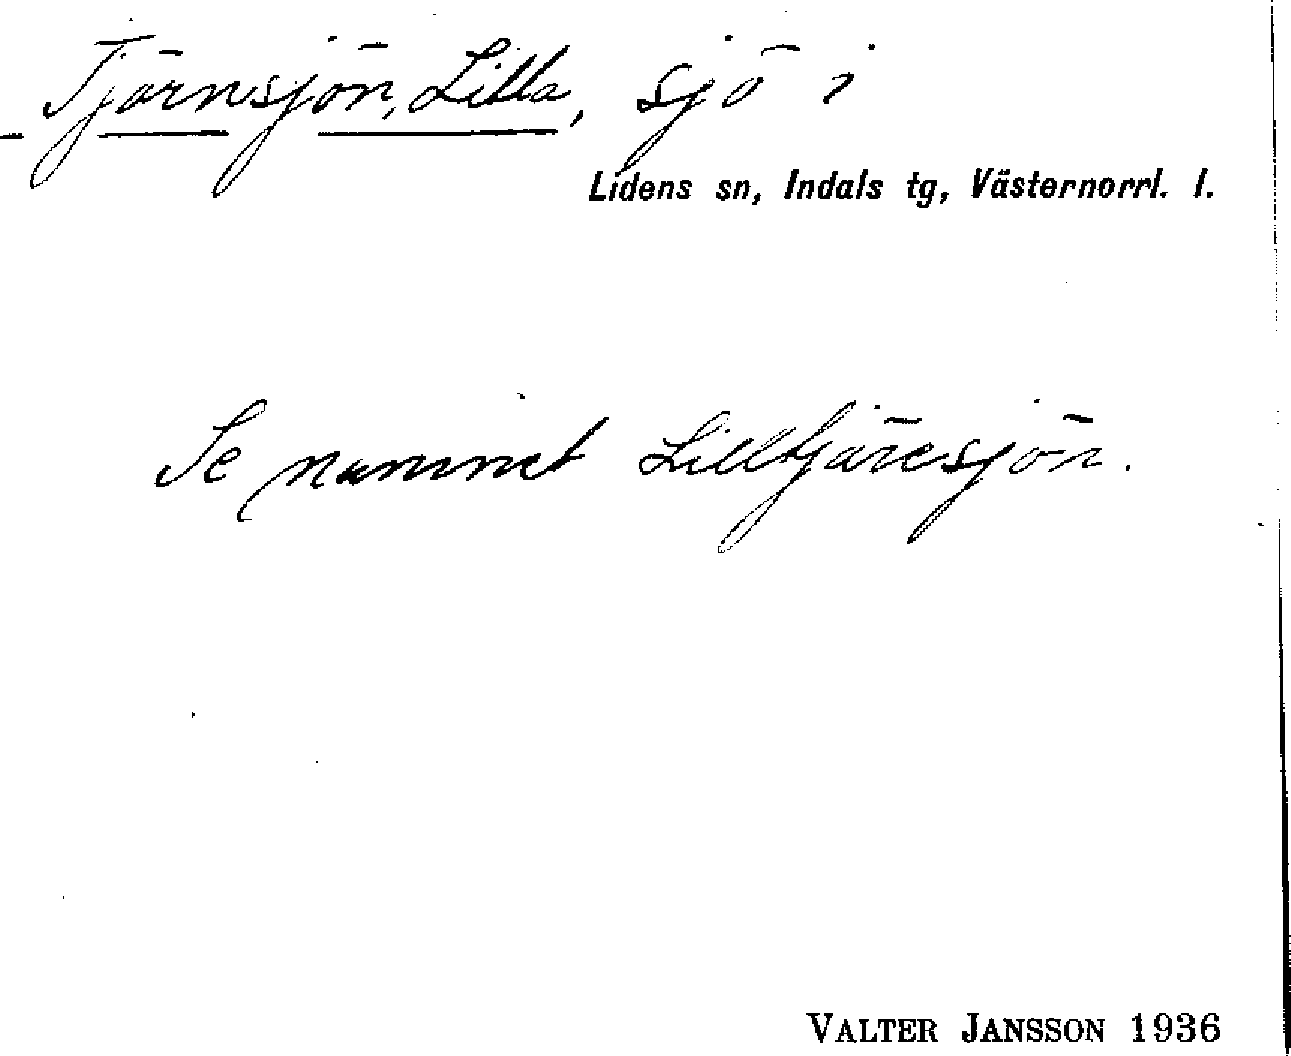 Tjärnsjön, Lilla, sjö i
Lidens sn, Indals tg, Västernorrl. l.
Se namnet Lilltjäresjön.
VALTER JANSSON 1936